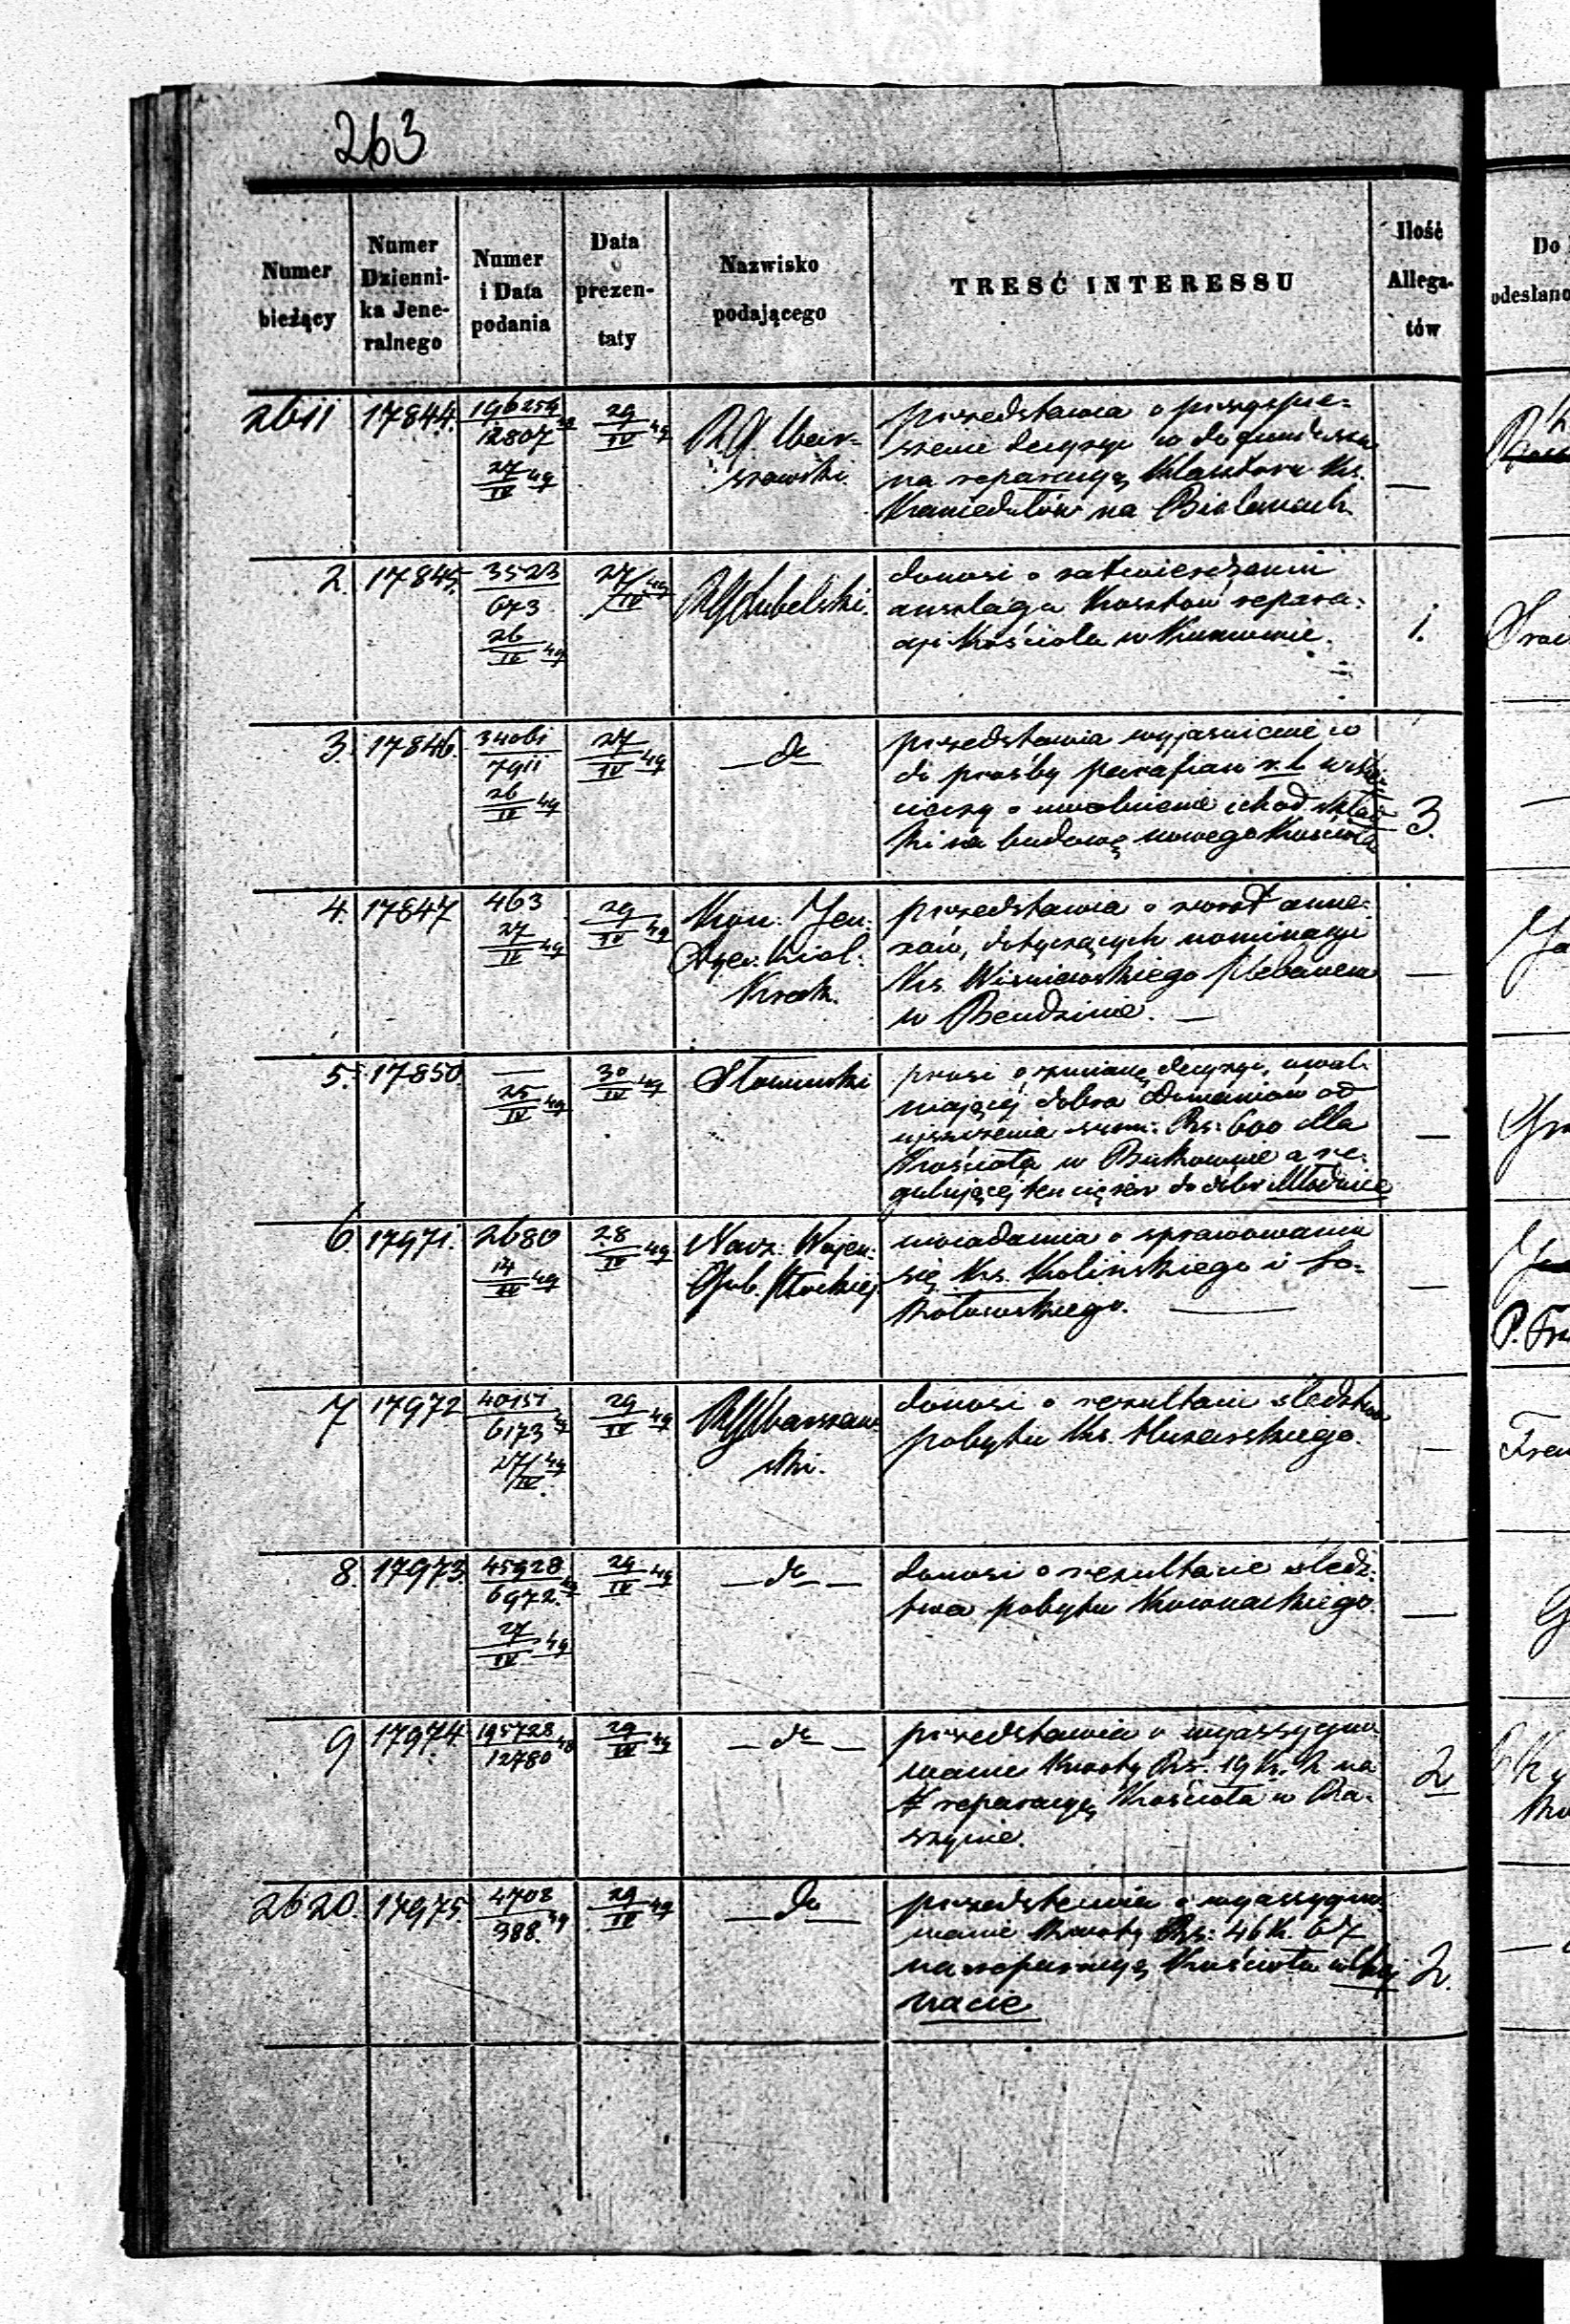 263
Numer bieżący
Numer Dziennika Jeneralnego
Numer i Data podania
Data prezentaty
Nazwisko podającego
TRESĆ INTERESSU
Ilość Allegatów
Do
odesłano
2611 17844. 196259/12807 27/IV 49 29/IV 49 R.G. War-
szawski.
przedstawia o przyspie-
szenie decyzyi w do funduszu
na reparacyą Klasztoru Ks.
Kamedułów na Bielanach
—
2. 17845. 3523/673 26/IV 49 27/IV 49 RG Lubelski.
donosi o zatwierdzeniu
anszlagu kosztów repara-
cji Kościoła w
1.
3. 17846. 34061/7911 26/IV 49 27/IV 49 — do
przedstawia wyjaśnienie w
do prośby parafian r. l.
o uwolnienie ich od skład-
ki na budowę nowego Kościoła
3.
4. 17847 463 27/IV 49 29/IV 49 Kon: Jen:
Dyec: Kiel:
Krak.
przedstawia o zwrot anne-
xów, dotyczących nominacyi
Ks. Wiśniewskiego Plebanem
w Bendzinie. —
—
5. 17850 — 25/IV 49 30/IV 49 Słowiński
prosi o zmianę decyzyi, uwal-
niającej dobra Domaniów od
uiszczenia summ: Rs: 600 dla
Kościoła w Bukownie a re-
gulującej ten ciężar do dóbr Młodnice
—
6. 17971. 2680 14/IV 49 28/IV 49 Nacz: Wojen:
Gub. Płockiej
uwiadamia o sprawowaniu
się Ks. Kolińskiego i So-
kołowskiego. —
—
P. Fra
7 17972 40151/6173 49 27/IV 49 29/IV 49 RG Warszaw-
ski.
donosi o rezultacie śledztwa
pobytu Ks. Huzarskiego.
—
8. 17973. 45928/6972. 49 27/IV 49 29/IV 49 — do —
donosi o rezultacie śledz-
twa pobytu Kownackiego.
—
9 17974. 195728/12780 48 29/IV 49 — do —
przedstawia o wyassygno-
wanie kwoty Rs. 19 K. 2 na
reparacyą Kościoła w Ra-
szynie.
2
2620. 17975. 4708/988. 49 29/IV 49 — do —
przedstawia o wyassygno-
wanie kwoty Rs: 46 K. 67
na reparacyą Kościoła w
nacie
2.